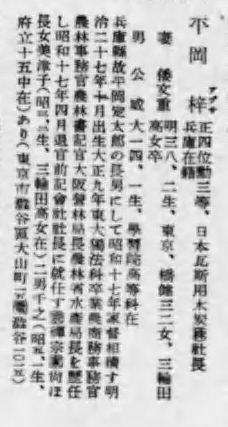 平岡 梓
アヅサ
正四位勳三等、日本瓦斯用木炭㈱社長
兵庫在籍
妻 倭文重 明三八、二生、東京、橋健三二女、三輪田高女卒
男 公威 大一四、一生、學習院高等科在
兵庫縣故平岡定太郎の長男にして昭和十七年家督相續す明
治二十七年十月出生大正九年東大獨法科卒業農商務事務官
農林事務官農林書記官大阪營林局長農林省水產局長を歷任
し昭和十七年四月退官前記會社社長に就任す 宗 尚ほ
長女美津子(昭三、二生、三輪田高女在)二男千之(昭五、一生、
府立十五中在)あり(東京市澁谷區大山町 澁谷)